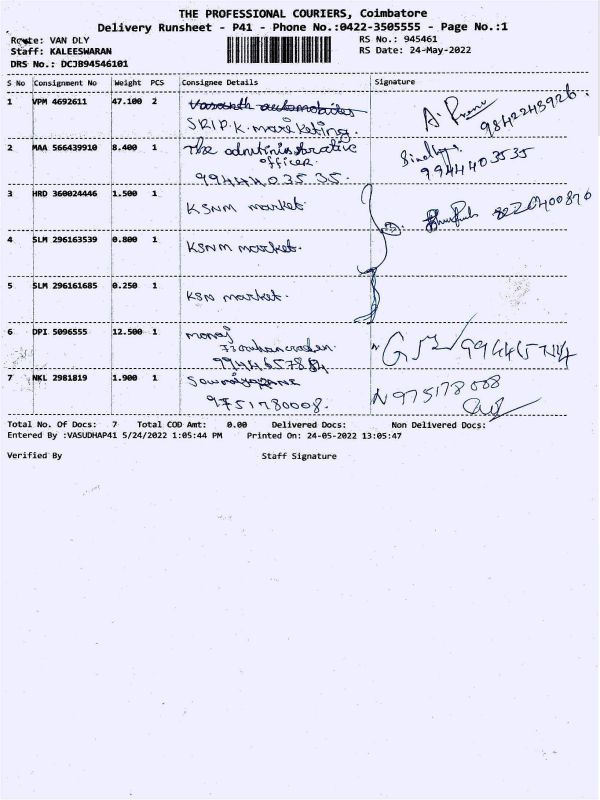 THE PROFESSIONAL COURIERS, Coimbatore
Delivery Runsheet - P41 - Phone No.:0422-3505555 - Page No.:1
Route: VAN DLY
RS No.: 945461
Staff: KALEESWARAN
RS Date: 24-May-2022
DRS No.: DCJB94546101
S No Consignment No Weight PCS Consignee Details Signature
1 VPM 4692611 47.100 2 Vasanth automobiles
SRI P.K. marketing.
9842243926
2 MAA 566439910 8.400 1 The administrative
officer.
9944403535.
9944403535
3 HRD 360024446 1.500 1 KSNM market
8220400876
4 SLM 296163539 0.800 1 KSNM market.
5 SLM 296161685 0.250 1 KSN market.
6 DPI 5096555 12.500 1 monaj
9944657884
7 NKL 2981819 1.900 1
9751780008.
N 975178008
Total No. Of Docs: 7 Total COD Amt: 0.00 Delivered Docs: Non Delivered Docs:
Entered By :VASUDHAP41 5/24/2022 1:05:44 PM Printed On: 24-05-2022 13:05:47
Verified By Staff Signature